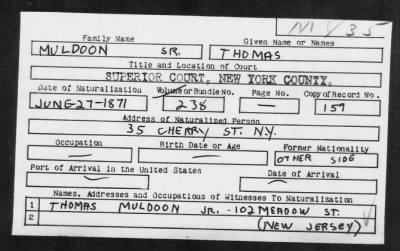 NY 35
Family Name Given Name or Names
MULDOON SR. THOMAS
Title and Location of Court
SUPERIOR COURT, NEW YORK COUNTY.
Date of Naturalization Volume or Bundle No. Page No. Copy of Record No.
JUNE-27-1871 238 — 159
Address of Naturalized Person
35 CHERRY ST. N.Y.
Occupation Birth Date or Age Former Nationality
— — OTHER SIDE
Port of Arrival in the United States Date of Arrival
— —
Names, Addresses and Occupations of Witnesses To Naturalization
1 THOMAS MULDOON JR. - 102 MEADOW ST.
2 (NEW JERSEY)